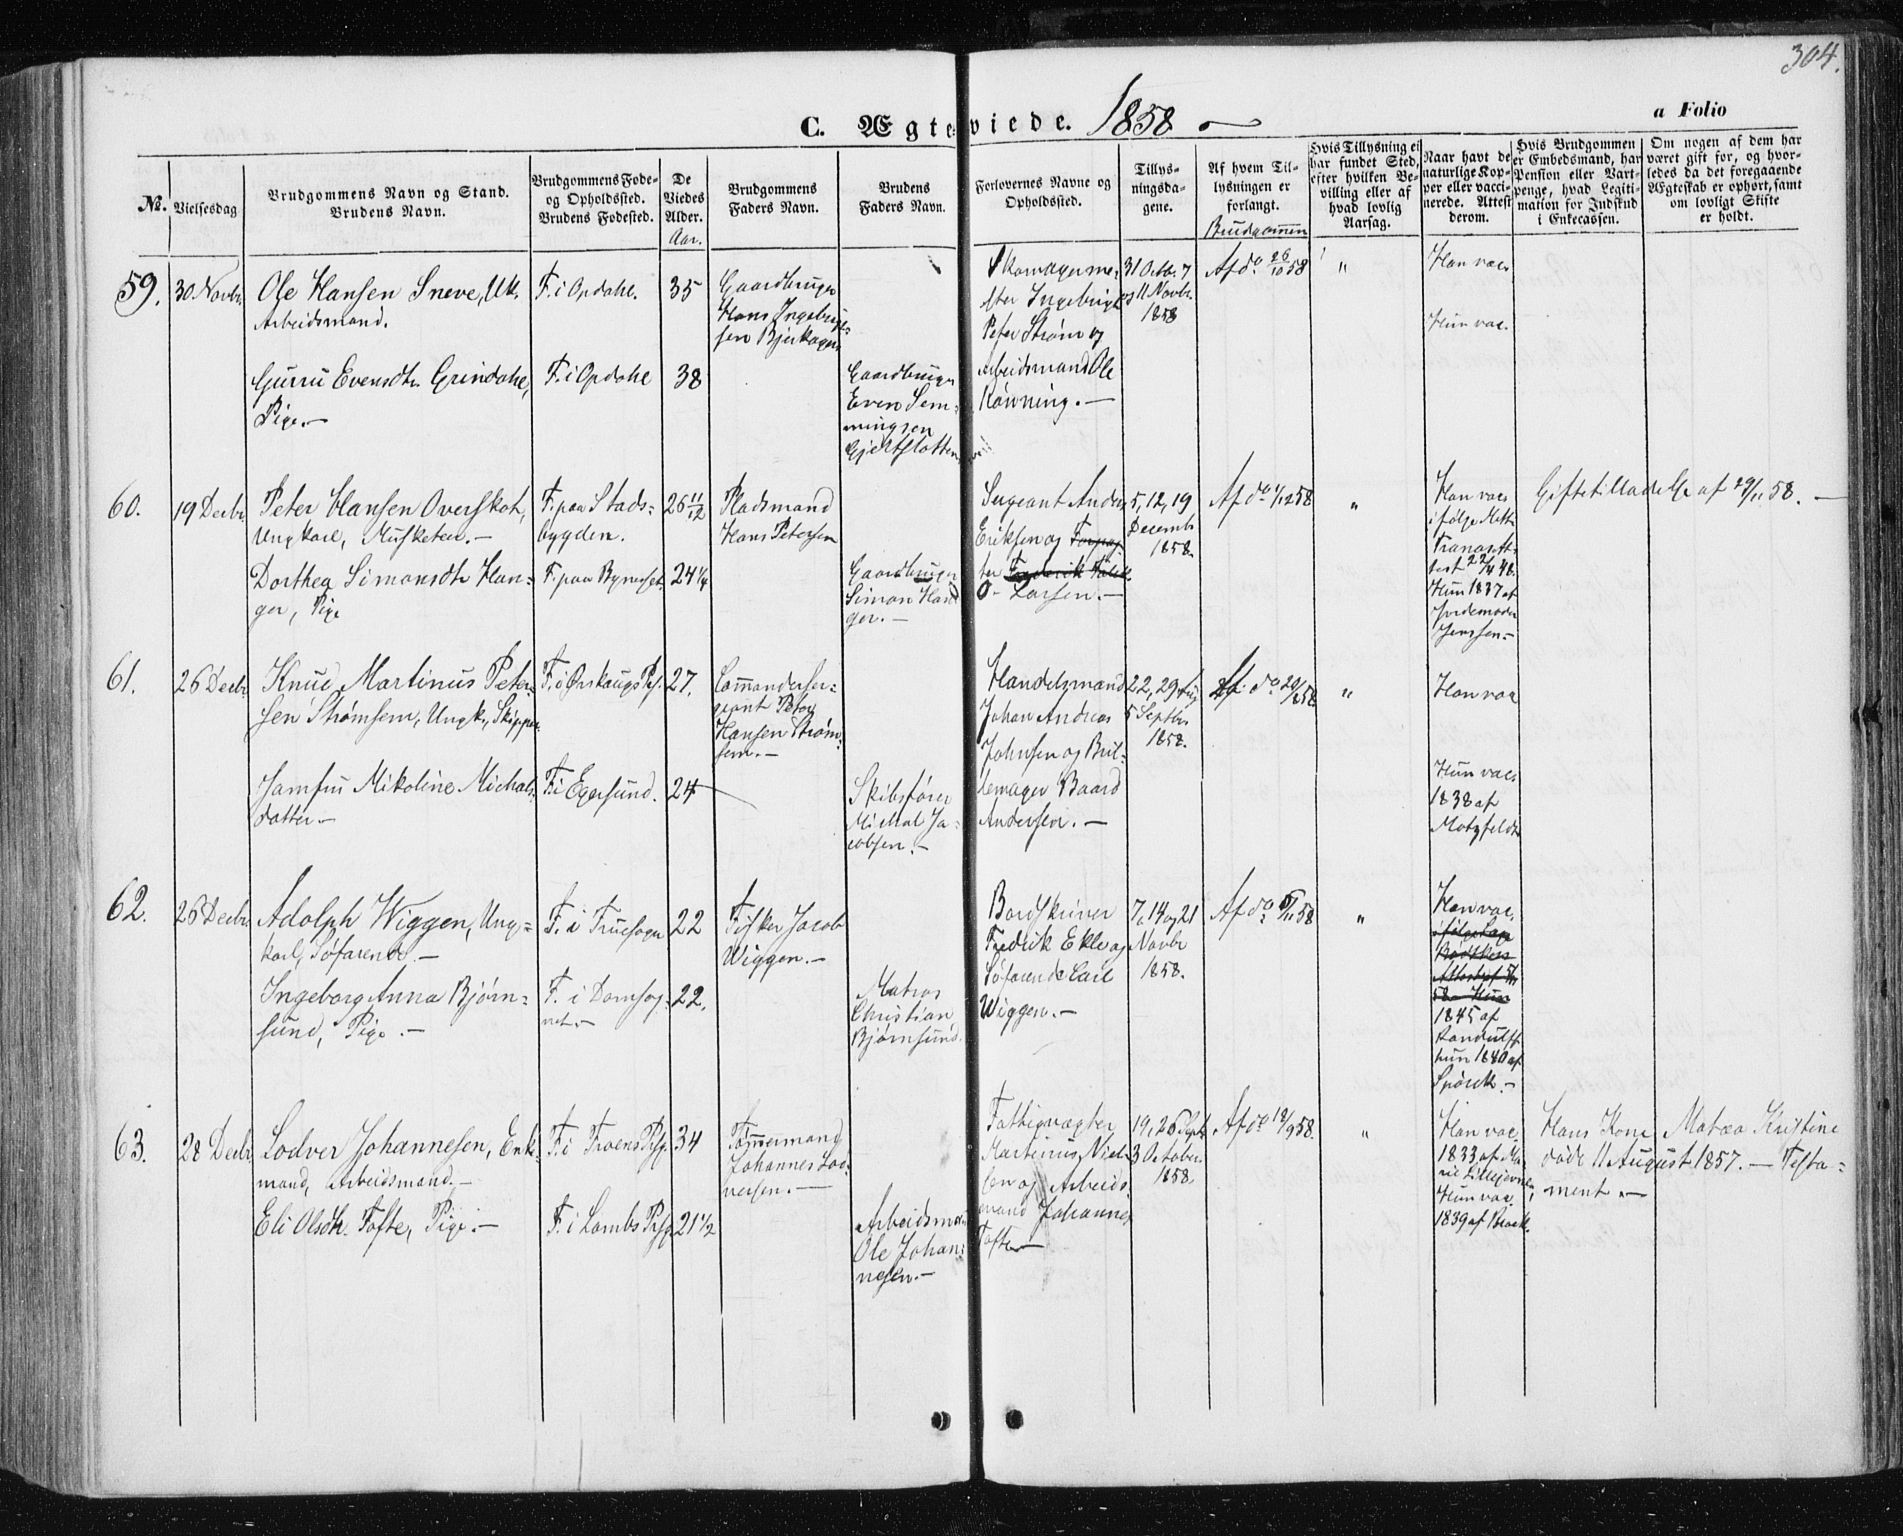 304.
C. Ægteviede. 1858
a Folio
No.
Vielsesdag
Brudgommens Navn og Stand.
Brudens Navn.
Brudgommens Føde-
og Opholdssted.
Brudens Fødested.
De
Viedes
Alder.
Aar.
Brudgommens
Faders Navn.
Brudens
Faders Navn.
Forlovernes Navne og
Opholdssted.
Tillys-
ningsda-
gene.
Af hvem Til-
lysningen er
forlangt.
Brudgommen
Hvis Tillysning ei
har fundet Sted,
efter hvilken Be-
villing eller af
hvad lovlig
Aarsag.
Naar havt de
naturlige Kop-
per eller vacci-
nerede. Attest
derom.
Hvis Brudgommen
er Embedsmand, har
Pension eller Vart-
penge, hvad Legiti-
mation for Indskud
i Enkecassen.
Om nogen af dem har
været gift før, og hvor-
ledes da det foregaaende
Ægteskab er ophørt, samt
om lovligt Skifte
er holdt.
59.
30 Novbr.
Ole Hansen Sneve, Uk.
Arbeidsmand.
Gurru Evensdtr. Grindahl,
Pige.—
F. i Opdahl.
F. i Opdahl
35
38
Gaardbruger
Hans Ingebrigt-
sen Bjerkager
Gaardbruger
Even Sem-
mingsen
Skomagerme-
ster Ingebrigt
Peter Strøm og
Arbeidsmand Ole
Rønning.—
31 Octbr. 7
og 11 Novbr.
1858
Af do 26/10 58
"
Han vac.
Hun vac.
60.
19 Decbr.
Peter Hansen Overskot,
Ungkarl, Musketeer.—
Dorthea Simonsdtr Han-
ger, Pige
F. paa Stads-
bygden.
F. paa Bynesset.
26 11/12
24 1/4
Pladsmand
Hans Petersen
Gaardbruger
Simon Han-
ger.—
Sergeant Anders
Eriksen og Forpag-
ter Frederik
O. Larsen.—
5, 12, 19
Decembr
1858.
Af do 1/12 58
"
Han vac.
ifølge
Tranas At-
test 22/4 48.
Hun 1837 af
Jordemoder
Jenssen.—
Giftetilladelse af 29/11 58.—
61.
26 Decbr.
Knud Martinus Peter-
sen Strømsem, Ungk., Skipper
Jamfru Mikoline Michals-
datter.—
F. i Ørskaugs Psg.
F. i Egersund.
27.
24
Commandeerser-
geant Peter
Hansen Strøm-
sem.—
Skibsfører
Michal Ja-
cobsen.—
Handelsmand
Johan Andreas
Johnsen og
Baard
Andersen.—
22, 29 Aug
5 Septbr.
1858.
Af do 20/8 58
"
Han vac
Hun vac.
1838 af
Motzfeldt
62.
26 Decbr.
Adolph Wiggen, Ung-
karl, Søfarende.—
Ingeborg Anna Bjørn-
sund, Pige.—
F. i Fruesogn
F. i Domsog-
net.—
22
22.
Fisker Jacob
Wiggen.—
Matros
Christian
Bjørnsund.
Bordskriver
Fredrik Ekle og
Søfarende Carl
Wiggen.—
7, 14 og 21
Novbr
1858.
Af do 5/11 58
"
Han vac.
1845 af
Randulff
hun 1840 af
Spørck.—
63.
28 Decbr.
Lodver Johannesen, Enke-
mand, Arbeidsmand.—
Eli Olsdtr. Tofte, Pige.—
F. i Froens Psg.
F. i Lombs Psg.
34
21 1/2
Tømmermand
Johannes Lod-
versen.—
Arbeidsmand
Ole Johan-
nesen.—
Fattigvægter
Martinus Niel-
sen og Arbeids-
mand Johannes
Tofte—
19, 26 Septbr
3 October
1858.
Af do 18/9 58.
"
Han vac.
1833 af
Hun vac.
1839 af Brock.
Hans Kone Matea Kristine
døde 11 August 1857.— Testa-
ment.—